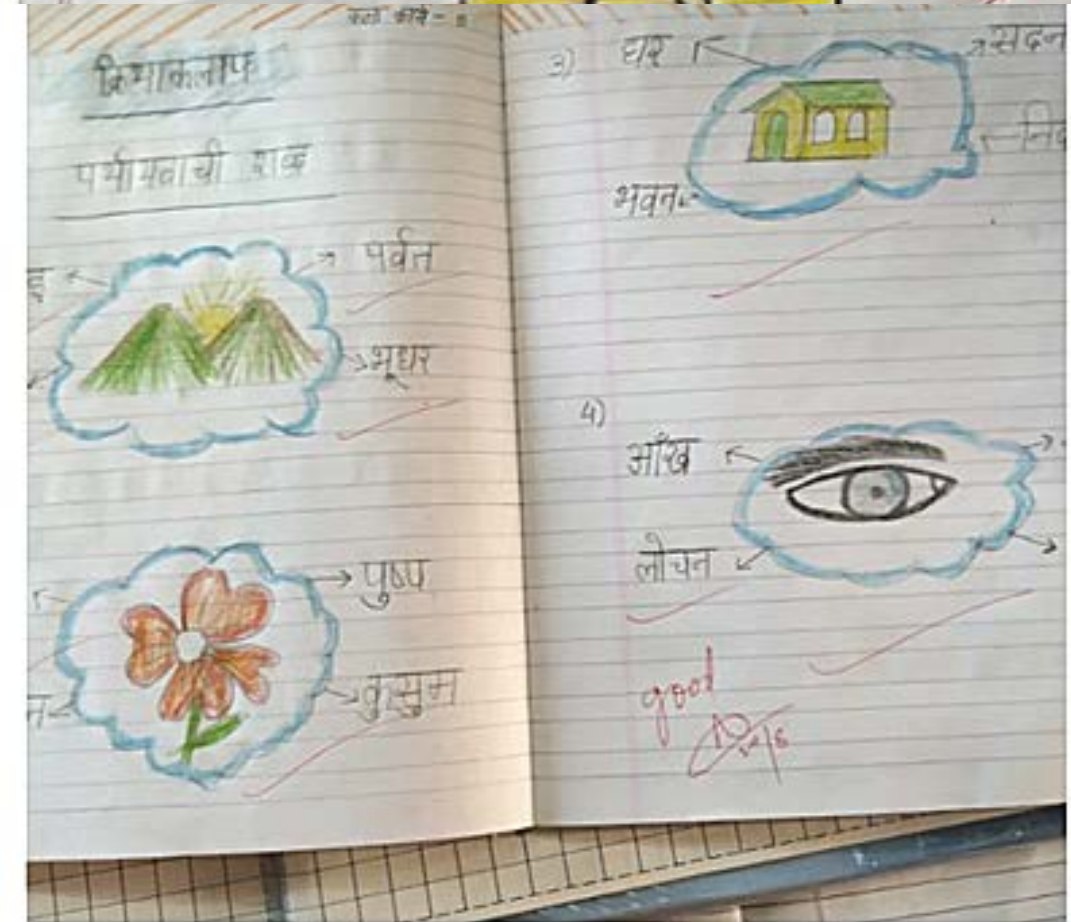 क्रियाकलाप
पर्यायवाची शब्द
पर्वत
भूधर
पुष्प
कुसुम
3)
घर
सदन
भवन
4)
आँख
लोचन
good